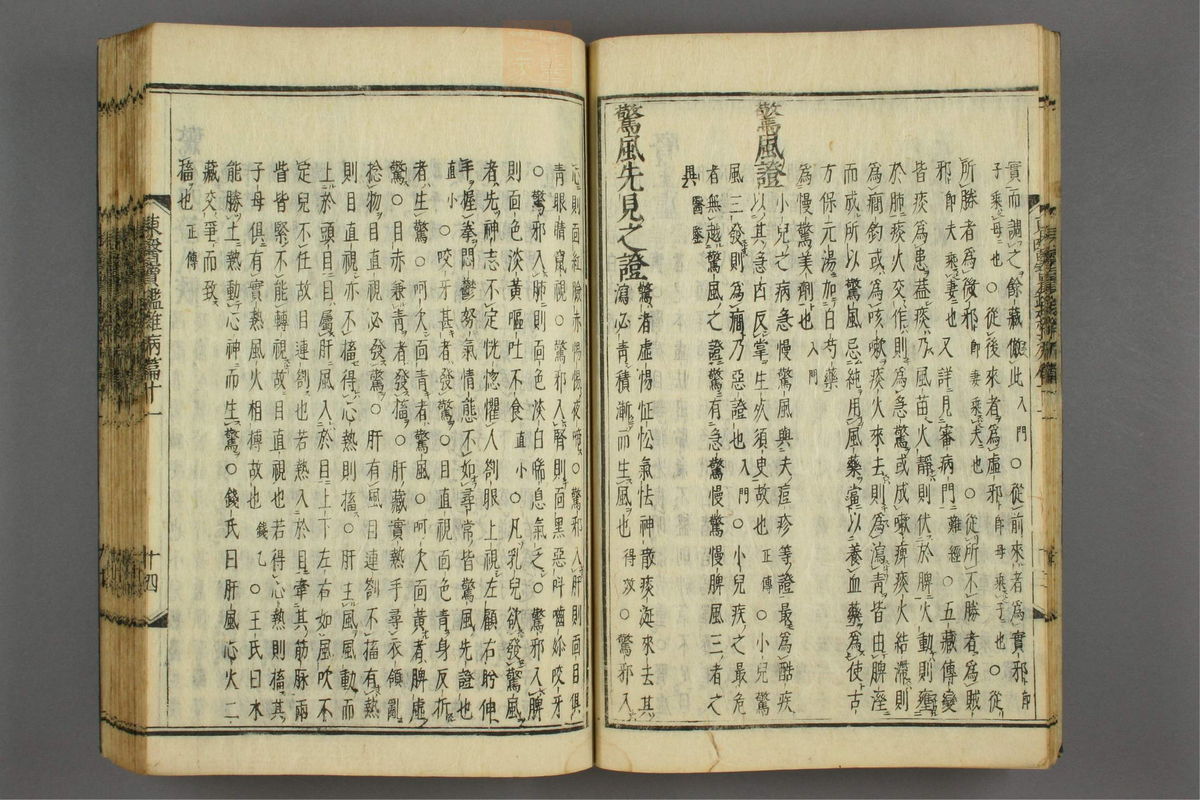 實而調之餘藏倣此入門○從前來者為實邪卽
子乘母也○從後來者為虛邪卽母乘子也○從
所勝者為微邪卽妻乘夫也○從所不勝者為賊
邪卽夫乘妻也又詳見審病門難經○五藏傳變
皆痰為患蓋痰乃風苗火靜則伏於脾火動則壅
於肺痰火交作則為急驚或成嗽痹痰火結滯則
為癎鈞或為咳嗽痰火來去則為瀉靑皆由脾溼
而成所以驚風忌純用風藥當以養血藥為使古
方保元湯加白芍藥
為慢驚美劑也入門
驚風證
小兒之病急慢驚風與夫痘疹等證最為酷疾
以其急古反掌生死須臾故也正傳○小兒驚
風三發則為癎乃惡證也入門○小兒疾之最危
者無越驚風之證驚有急驚慢驚慢脾風三者之
異醫鑒
驚風先見之證
驚者虛惕怔忪氣怯神散痰涎來去其
瀉必靑積漸而生風也得效○驚邪入
心則面紅臉赤惕惕夜啼○驚邪入肝則面目俱
靑眼睛竄視○驚邪入腎則面黑惡叫嚙妳咬牙
○驚邪入肺則面色淡白喘息氣乏○驚邪入脾
則面色淡黃嘔吐不食直小○凡乳兒欲發驚風
者先神志不定恍惚懼人劄眼上視左顧右盻伸
手握拳悶鬱努氣情態不如尋常皆驚風先證也
直小○咬牙甚者發驚○目直視面色靑身反折
者生驚○呵欠面靑者驚風○呵欠面黃者脾虛
驚○目赤兼靑者發搐○肝藏實熱手尋衣領亂
捻物目直視必發驚○肝有風目連劄不搐有熱
則目直視亦不搐得心熱則搐○肝主風風動而
上於頭目目屬肝風入於目上下左右如風吹不
定兒不任故目連劄也若熱入於目牽其筋脉兩
眥皆緊不能轉視故目直視也若得心熱則搐其
子母俱有實熱風火相搏故也錢乙○王氏曰木
能勝土熱動心神而生驚○錢氏曰肝風心火二
藏交爭而致
搐也正傳
東醫寶鑑雜病篇十一
十四